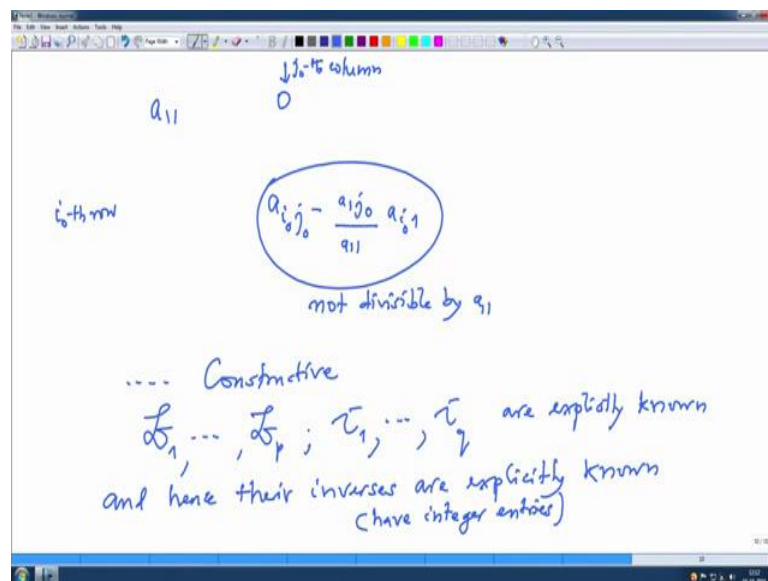 Note1 - Windows Journal
File Edit View Insert Actions Tools Help
Page Width
↓j₀-th column
a₁₁ 0
i₀-th row a_{i₀j₀} - \frac{a_{1j₀}}{a₁₁} a_{i₀1}
not divisible by a₁₁
.... Constructive
𝔉₁, ..., 𝔉_p ; τ₁, ..., τ_q are explicitly known
and hence their inverses are explicitly known
(have integer entries)